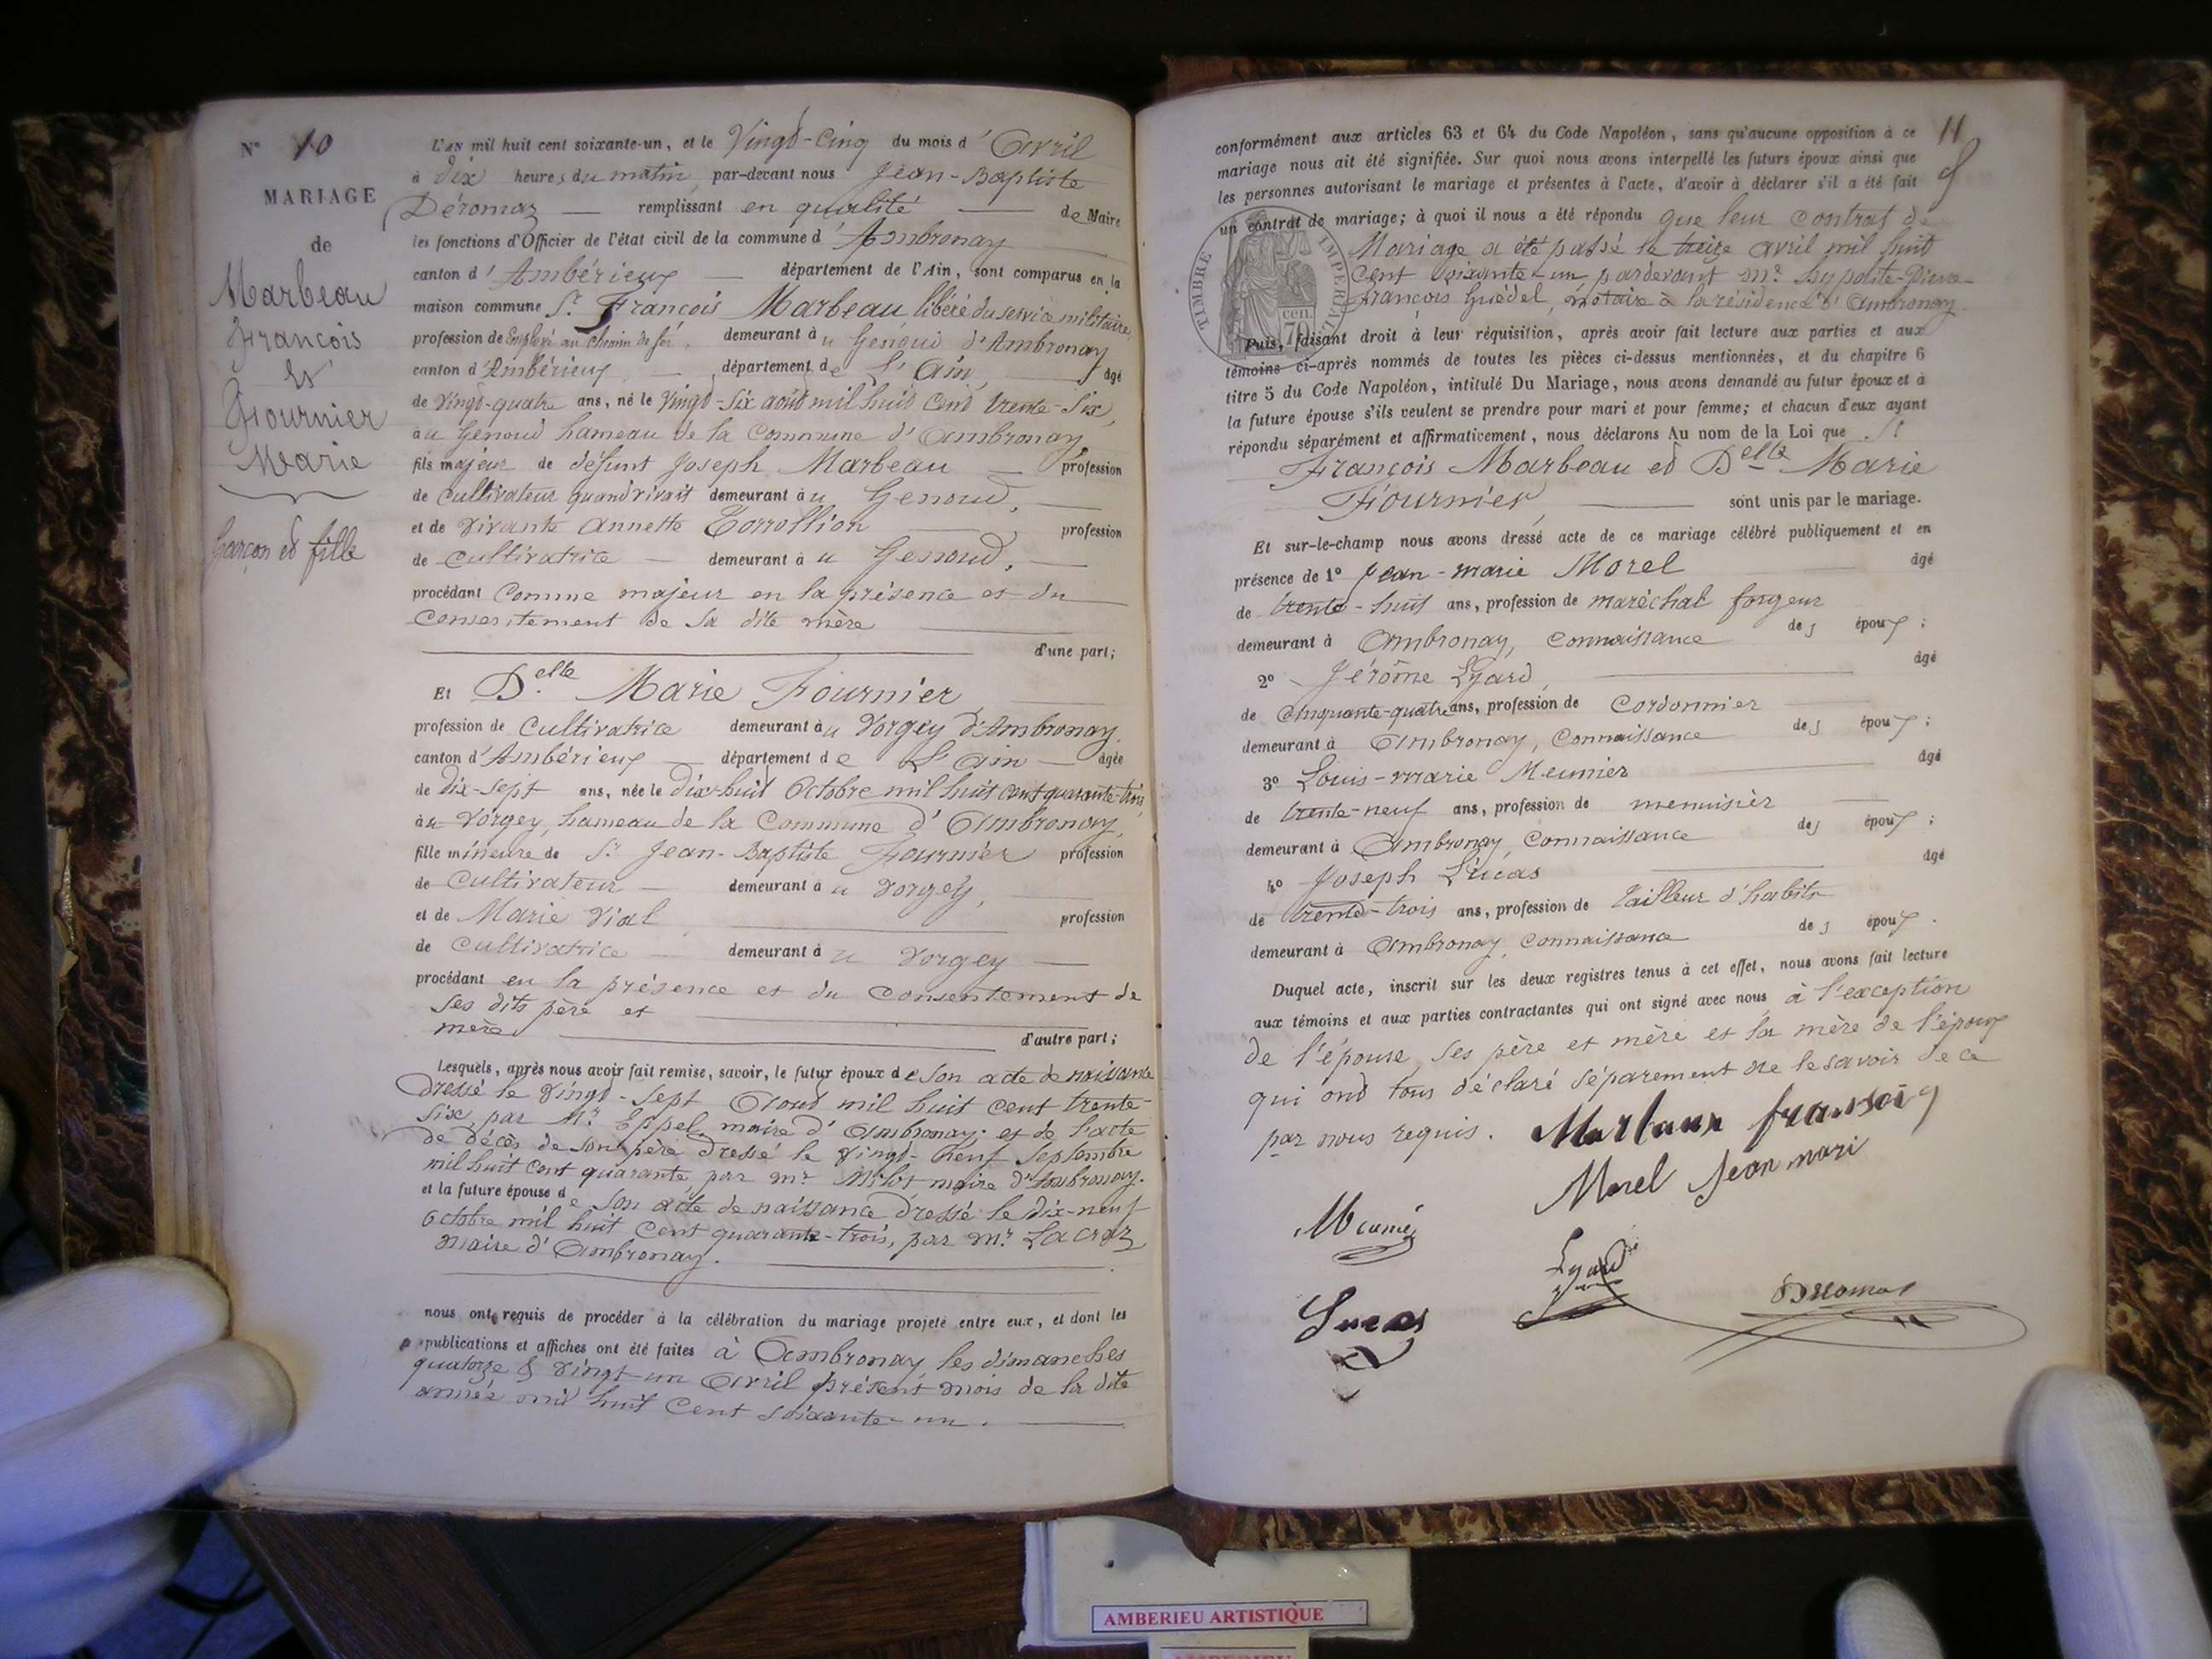 N° 10
MARIAGE
de
Marbeau
François
et
Fournier
Marie
Garçon et fille
L'AN mil huit cent soixante-un, et le Vingt-Cinq du mois d'Avril
à Dix heures du matin, par-devant nous Jean-Baptiste
Déromaz remplissant en qualité de Maire
les fonctions d'Officier de l'état civil de la commune d'Ambronay
canton d'Ambérieux département de l'Ain, sont comparus en la
maison commune Sr. François Marbeau, libéré du service militaire
profession de Employé au chemin de fer, demeurant au Genoud d'Ambronay
canton d'Ambérieux département de L'Ain âgé
de Vingt-quatre ans, né le Vingt-Six août mil huit Cent trente-Six,
au Genoud hameau de la Commune d'Ambronay,
fils majeur de défunt Joseph Marbeau profession
de Cultivateur quand vivait demeurant au Genoud,
et de vivante Annette profession
de Cultivatrice demeurant au Genoud,
procédant Comme majeur en la présence et du
Consentement de Sa dite mère
d'une part;
Et Delle Marie Fournier
profession de Cultivatrice demeurant au Vorgey d'Ambronay,
canton d'Ambérieux département de L'Ain âgée
de Dix-Sept ans, née le Dix-huit Octobre mil huit Cent quarante-trois
au Vorgey, hameau de la Commune d'Ambronay,
fille mineure de Sr. Jean-Baptiste Fournier profession
de Cultivateur demeurant au Vorgey,
et de Marie Vial profession
de Cultivatrice demeurant au Vorgey
procédant en la présence et du Consentement de
Ses dits père et
mère
d'autre part;
Lesquels, après nous avoir fait remise, savoir, le futur époux de Son acte de naissance
dressé le Vingt-Sept Août mil huit cent trente-
Six, par Mr. Eppel maire d'Ambronay; et de l'acte
de décès de Son père dressé le Vingt-neuf Septembre
mil huit Cent quarante, par Mr. maire d'Ambronay.
et la future épouse de Son acte de naissance dressé le Dix-neuf
Octobre mil huit Cent quarante-trois, par Mr. Lacraz
maire d'Ambronay.
nous ont requis de procéder à la célébration du mariage projeté entre eux, et dont les
publications et affiches ont été faites à Ambronay les dimanches
quatorze & Vingt-un Avril présent mois de la dite
année mil huit Cent Soixante-un.
11
conformément aux articles 63 et 64 du Code Napoléon, sans qu'aucune opposition à ce
mariage nous ait été signifiée. Sur quoi nous avons interpellé les futurs époux ainsi que
les personnes autorisant le mariage et présentes à l'acte, d'avoir à déclarer s'il a été fait
un contrat de mariage; à quoi il nous a été répondu que leur Contrat de
Mariage a été passé le treize avril mil huit
Cent Soixante-un pardevant Me. hypolite-Pierre-
François Guédel, notaire à la résidence d'Ambronay.
TIMBRE IMPERIAL
70 cen.
Puis, faisant droit à leur réquisition, après avoir fait lecture aux parties et aux
témoins ci-après nommés de toutes les pièces ci-dessus mentionnées, et du chapitre 6
titre 5 du Code Napoléon, intitulé Du Mariage, nous avons demandé au futur époux et à
la future épouse s'ils veulent se prendre pour mari et pour femme; et chacun d'eux ayant
répondu séparément et affirmativement, nous déclarons Au nom de la Loi que Sr
François Marbeau et Delle Marie
Fournier, sont unis par le mariage.
Et sur-le-champ nous avons dressé acte de ce mariage célébré publiquement et en
présence de 1° Jean-marie Morel âgé
de trente-huit ans, profession de maréchal forgeur
demeurant à Ambronay, Connaissance des époux;
2° Jérôme Lyard, âgé
de Cinquante-quatre ans, profession de Cordonnier
demeurant à Ambronay, Connaissance des époux;
3° Louis-marie Meunier âgé
de trente-neuf ans, profession de menuisier
demeurant à Ambronay, Connaissance des époux;
4° Joseph Lucas âgé
de trente-trois ans, profession de tailleur d'habits
demeurant à Ambronay, Connaissance des époux.
Duquel acte, inscrit sur les deux registres tenus à cet effet, nous avons fait lecture
aux témoins et aux parties contractantes qui ont signé avec nous à l'exception
de l'épouse, Ses père et mère et la mère de l'époux
qui ont tous déclaré Séparement ne le savoir de ce
par nous requis. Marbaux fransoi
Morel Jean mari
Meunié
Lyard
Lucas
Déromas
AMBERIEU ARTISTIQUE
AMBERIEU